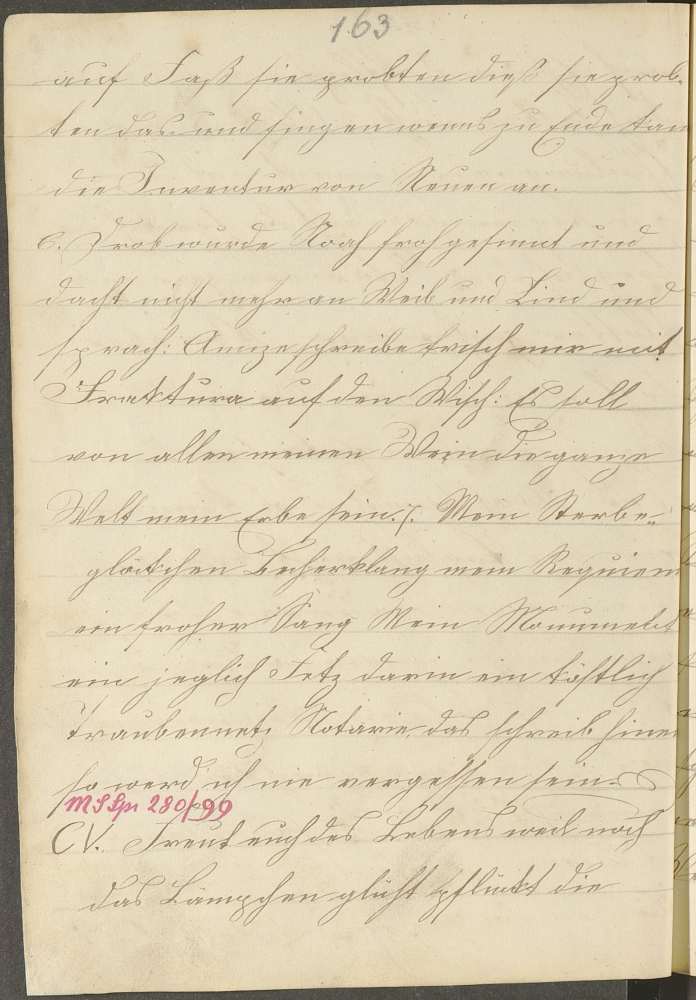 163
auf Faß sie probten dieß sie prob-
ten das und fingen wenns zu Ende kam
die Inventur von Neuen an.
6. Drob wurde Noah froh gesinnt und
dacht nicht mehr an Weib und Kind und
sprach: schreibe frisch mir mit
Fraktura auf den Wisch: Es soll
von allen meinen Wein die ganze
Welt mein Erbe sein. 7. Mein Sterbe-
glöckchen Becherklang mein Requiem
ein froher Sang Mein Monument
ein jeglich Fetz darin ein köstlich
Traubennetz Notarie, das schreib hinein
so werd ich nie vergessen sein.
MS Spr 280/99
CV. Freut euch des Lebens weil noch
das Lämpchen glüht pflückt die